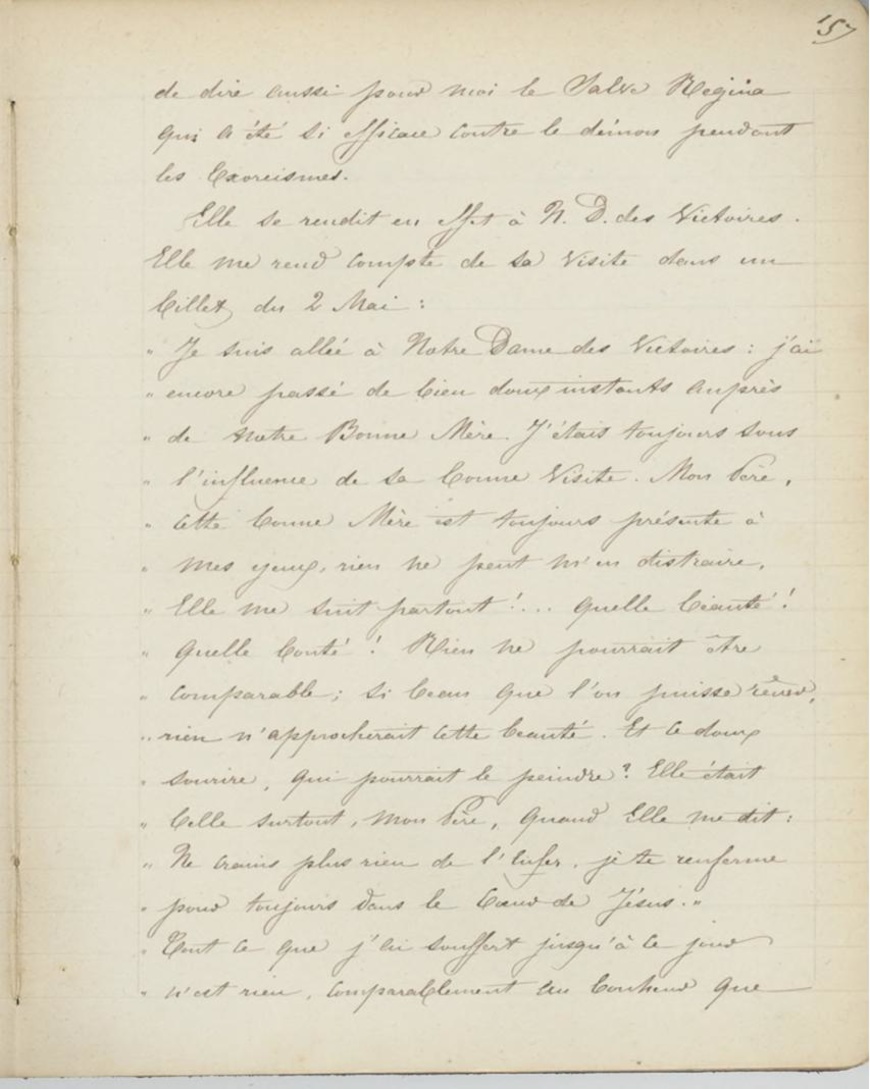 157
de dire aussi pour moi le Salve Regina
qui a été si efficace contre le démon pendant
les Exorcismes.
Elle se rendit en effet à N. D. des Victoires.
Elle me rend compte de sa visite dans un
billet du 2 Mai :
" Je suis allée à Notre Dame des Victoires : j'ai
" encore passé de bien doux instants auprès
" de notre Bonne Mère. J'étais toujours sous
" l'influence de sa bonne visite. Mon Père,
" cette bonne Mère est toujours présente à
" mes yeux, rien ne peut m'en distraire,
" Elle me suit partout !... quelle beauté !
" quelle bonté ! Rien ne pourrait être
" comparable ; si beau que l'on puisse rêver,
" rien n'approcherait cette beauté. Et ce doux
" sourire, qui pourrait le peindre ? Elle était
" belle surtout, mon Père, quand Elle me dit :
" Ne crains plus rien de l'enfer, je te renferme
" pour toujours dans le Cœur de Jésus."
" Tout ce que j'ai souffert jusqu'à ce jour
" n'est rien, comparablement au bonheur que